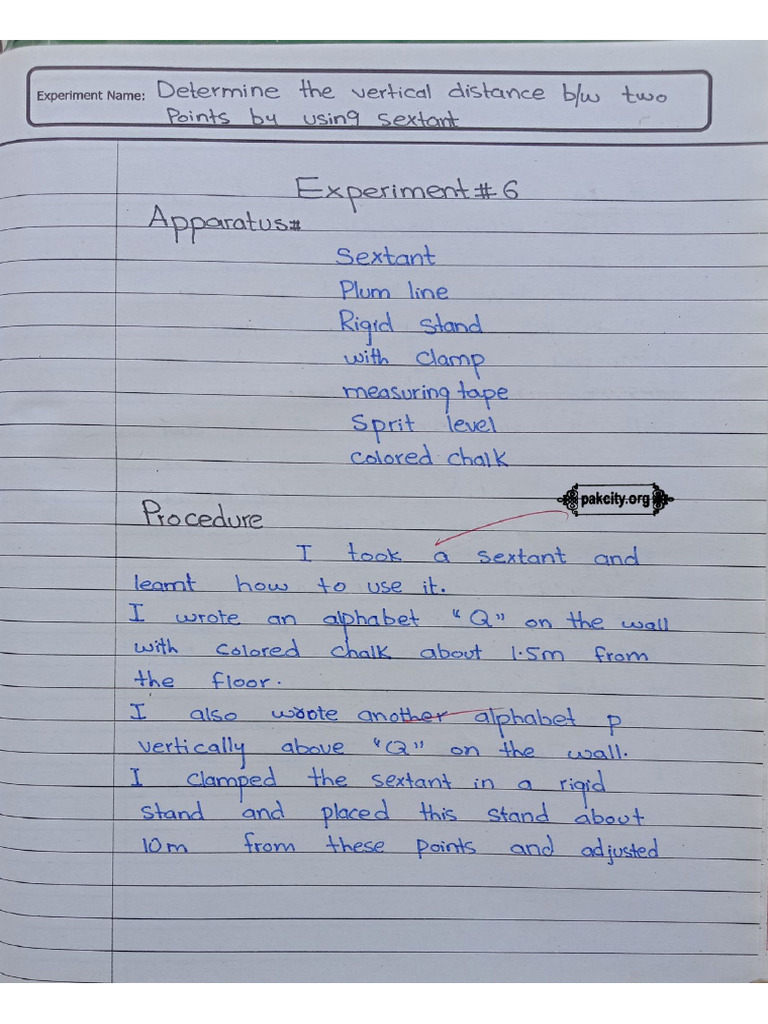 Experiment Name: Determine the vertical distance b/w two
Points by using sextant
Experiment # 6
Apparatus #
Sextant
Plum line
Rigid stand
with clamp
measuring tape
Sprit level
colored chalk
pakcity.org
Procedure
I took a sextant and
learnt how to use it.
I wrote an alphabet "Q" on the wall
with colored chalk about 1.5m from
the floor.
I also wrote another alphabet p
vertically above "Q" on the wall.
I clamped the sextant in a rigid
stand and placed this stand about
10m from these points and adjusted